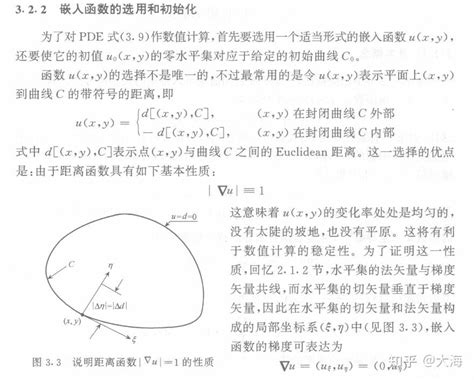 3.2.2 嵌入函数的选用和初始化
为了对 PDE 式(3.9)作数值计算,首先要选用一个适当形式的嵌入函数 u(x,y),
还要使它的初值 u₀(x,y)的零水平集对应于给定的初始曲线 C₀。
函数 u(x,y)的选择不是唯一的,不过最常用的是令 u(x,y)表示平面上(x,y)
到曲线 C 的带符号的距离,即
u(x,y) = { d[(x,y),C], (x,y) 在封闭曲线 C 外部
− d[(x,y),C], (x,y) 在封闭曲线 C 内部
式中 d[(x,y),C]表示点(x,y)与曲线 C 之间的 Euclidean 距离。这一选择的优点
是:由于距离函数具有如下基本性质:
| ∇u | ≡ 1
u=d=0
C
η
|Δη|=|Δd|
(x, y)
ξ
图 3.3 说明距离函数|∇u|=1 的性质
这意味着 u(x,y)的变化率处处是均匀的,
没有太陡的坡地,也没有平原。这将有利
于数值计算的稳定性。为了证明这一性
质,回忆 2.1.2 节,水平集的法矢量与梯度
矢量共线,而水平集的切矢量垂直于梯度
矢量,因此在水平集的切矢量和法矢量构
成的局部坐标系(ξ,η)中(见图 3.3),嵌入
函数的梯度可表达为
∇u = (u_ξ, u_η) = (0, u_η)
知乎 @大海